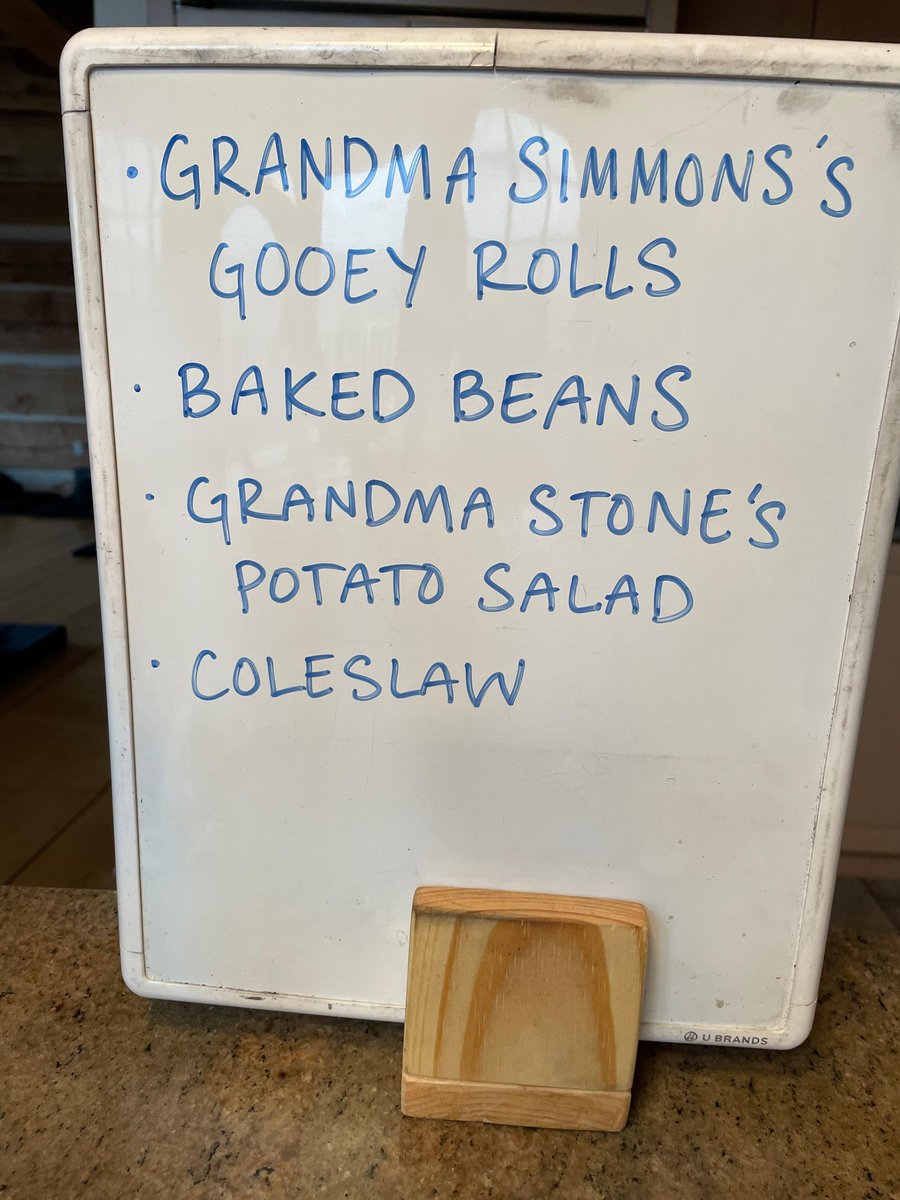 · GRANDMA SIMMONS'S
GOOEY ROLLS
· BAKED BEANS
· GRANDMA STONE'S
POTATO SALAD
· COLESLAW
U BRANDS